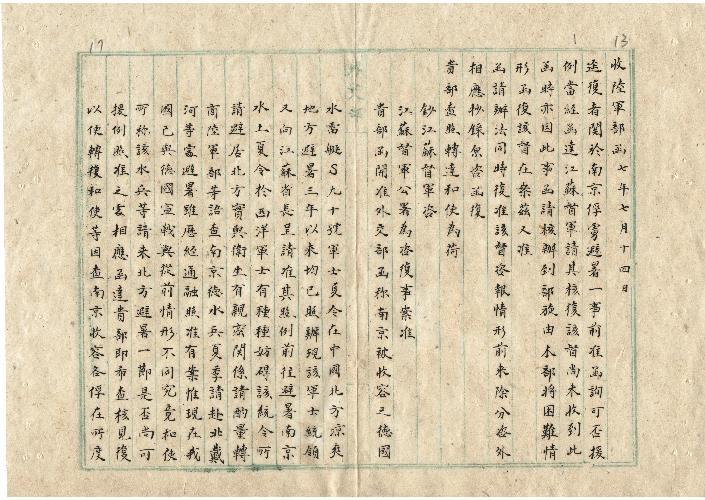 13
1
17
收陸軍部函 七年七月十四日
逕復者關於南京俘虜避暑一事前准函詢可否援
例當經函達江蘇督軍請其核復該督尚未收到此
函時亦因此事函請核辦到部旋由本部將困難情
形函復該督在案茲又准
函請辦法同時復准該督咨報情形前來除分咨外
相應抄錄原咨函復
貴部查照轉達和使為荷
鈔江蘇督軍咨
江蘇督軍公署為咨復事案准
貴部函開准外交部函稱南京被收容之德國
水雷艇S九十號軍士夏令在中國北方涼爽
地方避暑三年以來均已照辦現該軍士統領
又向江蘇省長呈請准其照例前往避暑南京
水土夏令於西洋軍士有種種妨碍該統令所
請避居北方實與衛生有親密關係請酌量轉
商陸軍部等語查南京德水兵夏季請赴北戴
河等處避暑雖歷經通融照准有案惟現在我
國已與德國宣戰與從前情形不同究竟和使
所稱該水兵等請來北方避暑一節是否尚可
援例照准之處相應函達貴部即希查核見復
以便轉復和使等因查南京收容各俘在所度